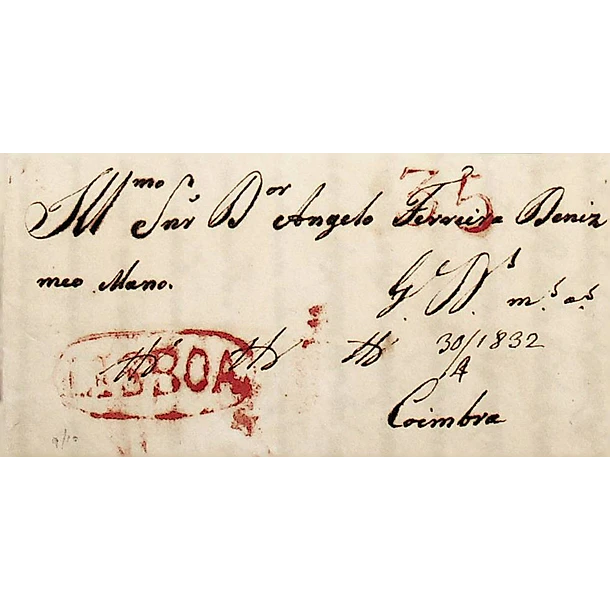 Illmo Snr Dor Angelo Ferreira Deniz
35
meo Mano.
G. Ds. ms. as.
LISBOA
30/1832
4
Coimbra